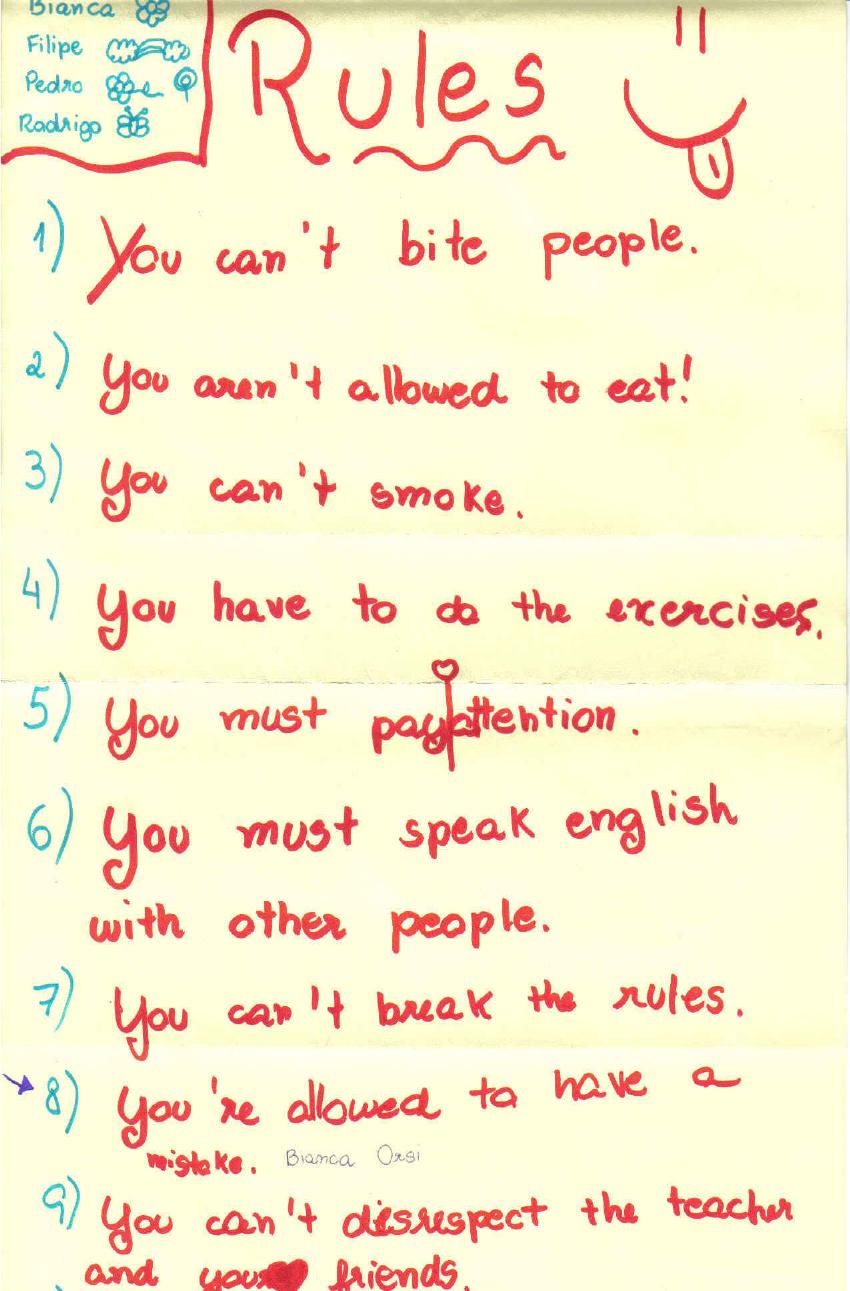 Bianca
Filipe
Pedro
Rodrigo
Rules
1) You can't bite people.
2) You aren't allowed to eat!
3) You can't smoke.
4) You have to do the exercises.
5) You must pay attention.
6) You must speak english
with other people.
7) You can't break the rules.
8) You're allowed to have a
mistake. Bianca Orsi
9) You can't disrespect the teacher
and your friends.